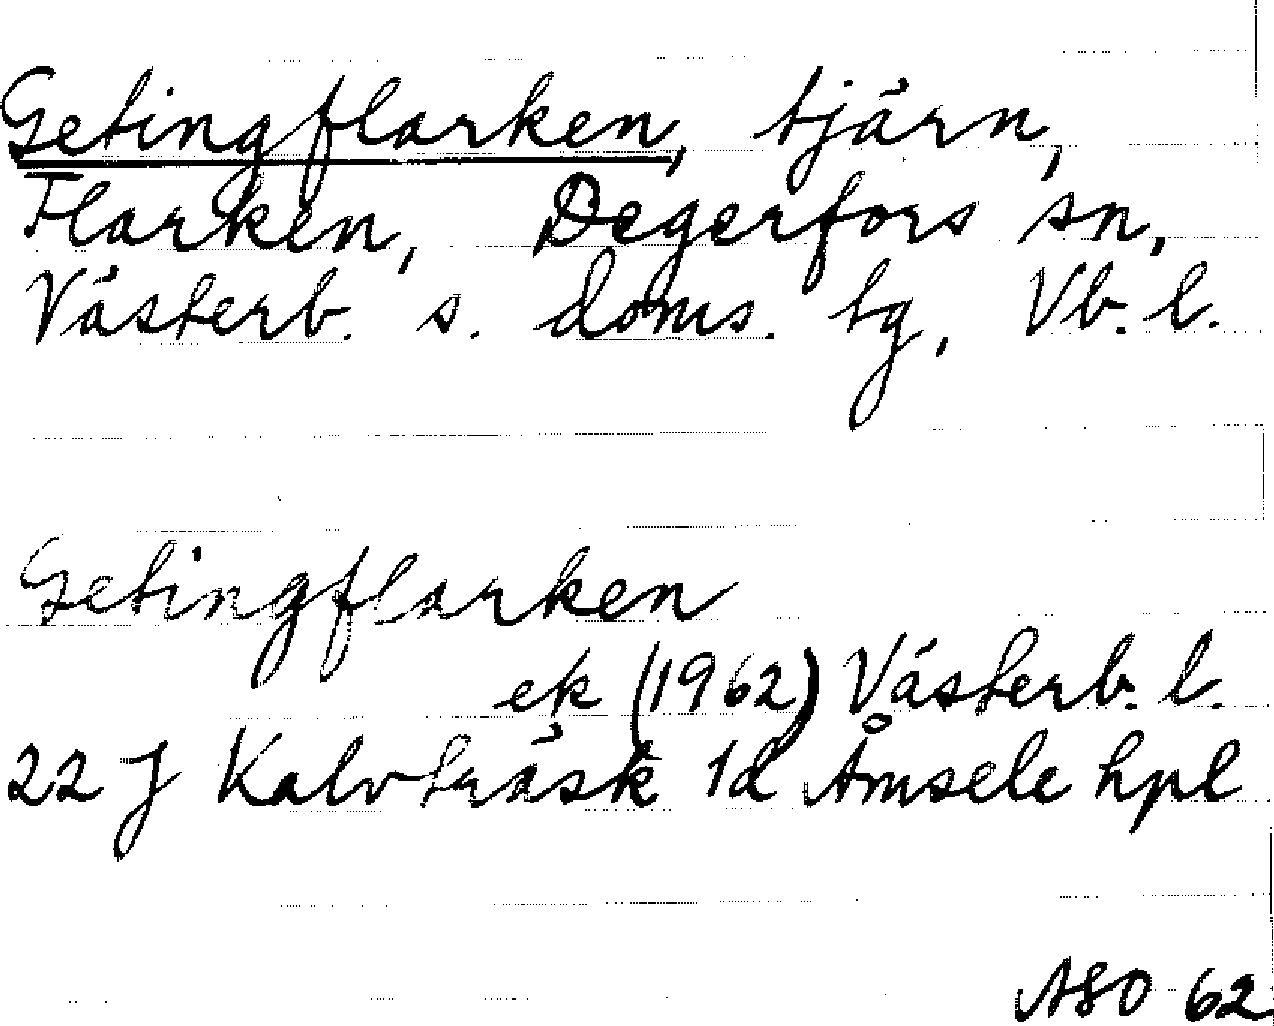 Getingflarken, tjärn,
Flarken, Degerfors sn,
Västerb. s. doms. tg, Vb. l.
Getingflarken
ek (1962) Västerb. l.
22 J Kalvträsk 1d Åmsele hpl
ASO 62